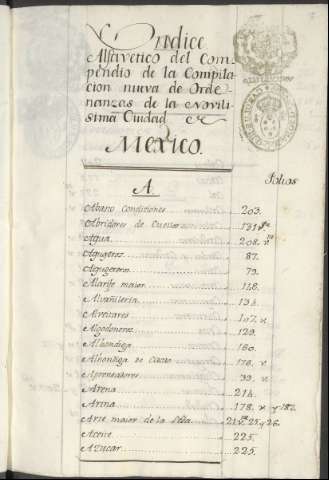 Yndice
Alfavetico del Com
pendio de la Compila
cion nueva de Orde
nanzas de la Novili
sima Ciudad de
Mexico.
Folios
A
Abasto Condiciones 203.
Abridores de Cuellos 131
Agua 208. v
Agujeros 87.
Agugereros 73.
Alarife maior 128.
Alvañileria 134.
Alveitares 107. v
Algodoneros 129.
Alhondiga 160.
Alhondiga de Cacao 176. v
Aprensadores 39. v
Arena 214.
Arina 178. v y 182.
Arte maior de la Seda 21 v. 25. y 26.
Aceite 225.
Azucar 225.